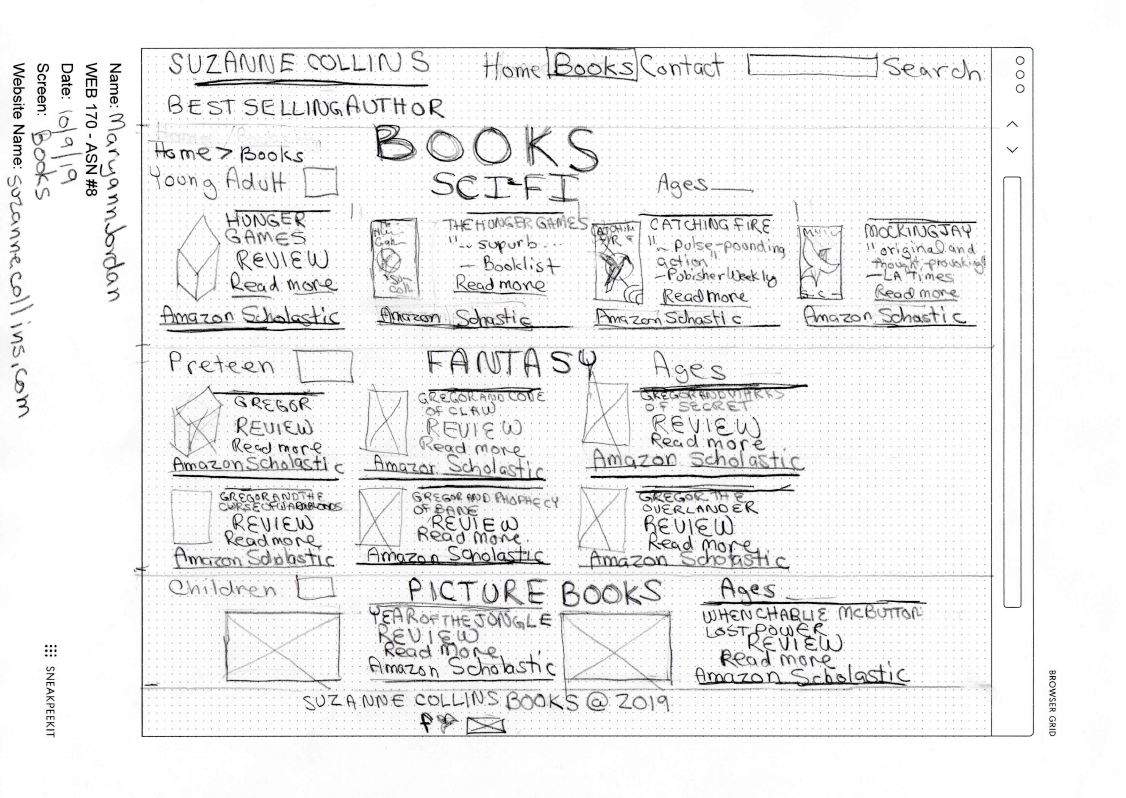 SUZANNE COLLINS
Home Books Contact Search
BEST SELLING AUTHOR
BOOKS
Home > Books
Young Adult SCI-FI Ages
HUNGER
GAMES
REVIEW
Read more
Amazon Scholastic
THE HUNGER GAMES
"~ supurb...
- Booklist
Read more
Amazon Schastic
CATCHING FIRE
"~ Pulse-pounding
action"
- Pobisher Weekly
Read more
Amazon Schastic
MOCKINGJAY
"original and
thought, provoking"
- LA Times
Read more
Amazon Schastic
Preteen FANTASY Ages
GREGOR
REVIEW
Read more
Amazon Scholastic
GREGOR AND CODE
OF CLAW
REVIEW
Read more
Amazon Scholastic
GREGOR AND MARKS
OF SECRET
REVIEW
Read more
Amazon Scholastic
GREGOR AND THE
CURSE OF WARMBLOODS
REVIEW
Read more
Amazon Scholastic
GREGOR AND PROPHECY
OF BANE
REVIEW
Read more
Amazon Scholastic
GREGOR THE
OVERLANDER
REVIEW
Read more
Amazon Scholastic
Children PICTURE BOOKS Ages
YEAR OF THE JUNGLE
REVIEW
Read More
Amazon Scholastic
WHEN CHARLIE McBUTTON
LOST POWER
REVIEW
Read more
Amazon Scholastic
SUZANNE COLLINS BOOKS @ 2019
Name: Maryann Jordan
WEB 170 - ASN #8
Date: 10/9/19
Screen: Books
Website Name: suzannecollins.com
SNEAKPEEKIT
BROWSER GRID